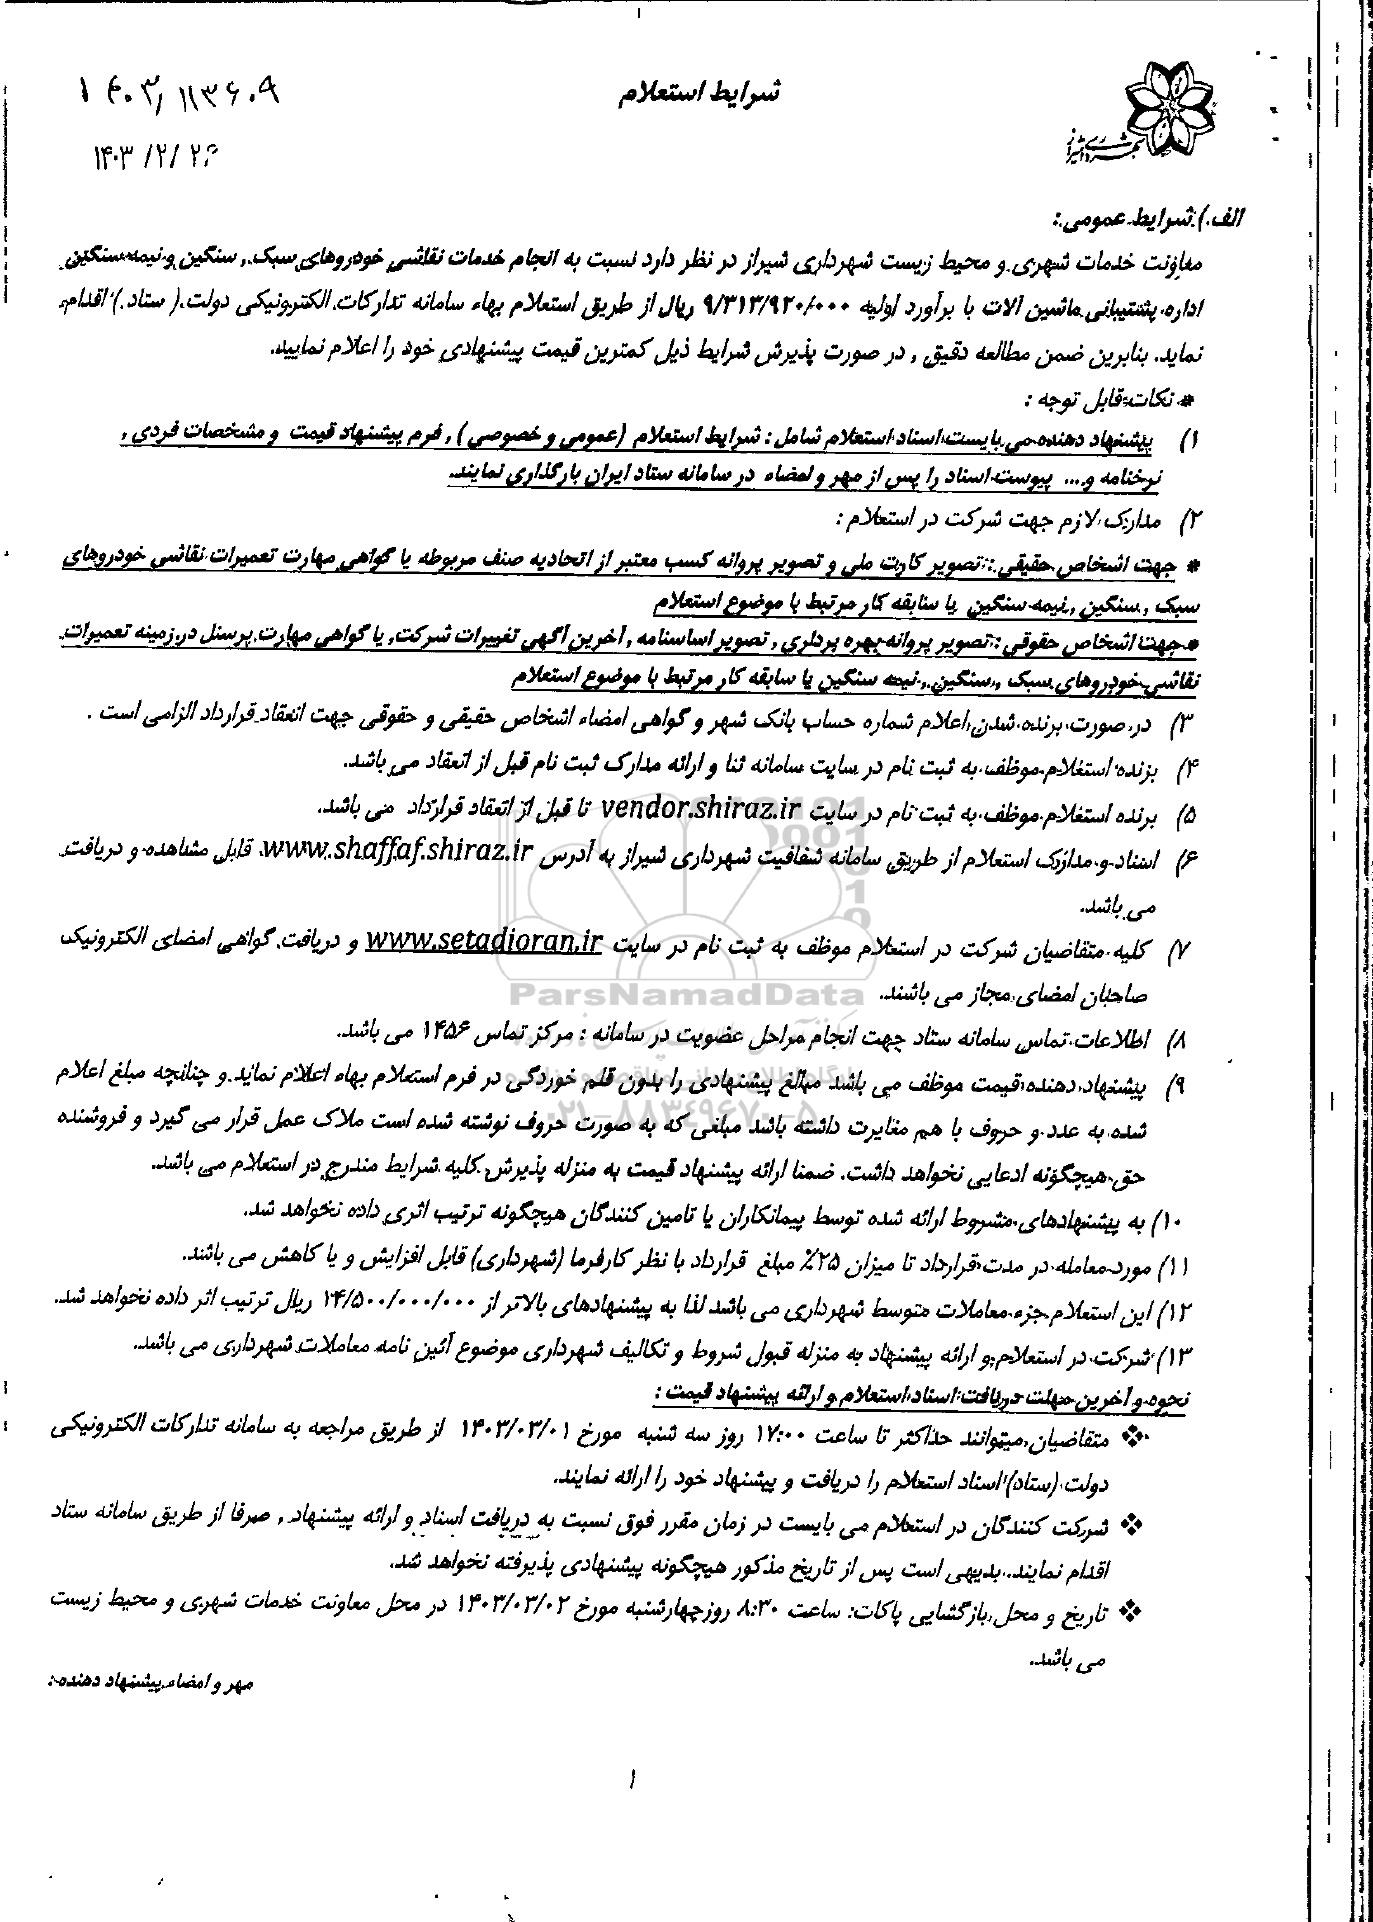 شرایط استعلام
شهرداری شیراز
۱۴۰۳/۱۱۳۶۰۹
۱۴۰۳/۲/۲۶
الف ) شرایط عمومی :
معاونت خدمات شهری و محیط زیست شهرداری شیراز در نظر دارد نسبت به انجام خدمات نقاشی خودروهای سبک , سنگین و نیمه سنگین
اداره پشتیبانی ماشین آلات با برآورد اولیه ۹/۳۱۳/۹۲۰/۰۰۰ ریال از طریق استعلام بهاء سامانه تدارکات الکترونیکی دولت ( ستاد ) اقدام
نماید. بنابرین ضمن مطالعه دقیق , در صورت پذیرش شرایط ذیل کمترین قیمت پیشنهادی خود را اعلام نمایید.
* نکات قابل توجه :
۱) پیشنهاد دهنده می بایست اسناد استعلام شامل : شرایط استعلام (عمومی و خصوصی ) , فرم پیشنهاد قیمت و مشخصات فردی ,
نرخنامه و ... پیوست اسناد را پس از مهر و امضاء در سامانه ستاد ایران بارگذاری نمایند.
۲) مدارک لازم جهت شرکت در استعلام :
* جهت اشخاص حقیقی : تصویر کارت ملی و تصویر پروانه کسب معتبر از اتحادیه صنف مربوطه یا گواهی مهارت تعمیرات نقاشی خودروهای
سبک , سنگین , نیمه سنگین یا سابقه کار مرتبط با موضوع استعلام
* جهت اشخاص حقوقی : تصویر پروانه بهره برداری , تصویر اساسنامه , آخرین آگهی تغییرات شرکت, یا گواهی مهارت پرسنل در زمینه تعمیرات
نقاشی خودروهای سبک , سنگین , نیمه سنگین یا سابقه کار مرتبط با موضوع استعلام
۳) در صورت برنده شدن, اعلام شماره حساب بانک شهر و گواهی امضاء اشخاص حقیقی و حقوقی جهت انعقاد قرارداد الزامی است .
۴) برنده استعلام موظف به ثبت نام در سایت سامانه ثنا و ارائه مدارک ثبت نام قبل از انعقاد می باشد.
۵) برنده استعلام موظف به ثبت نام در سایت vendor.shiraz.ir تا قبل از انعقاد قرارداد می باشد.
۶) اسناد و مدارک استعلام از طریق سامانه شفافیت شهرداری شیراز به آدرس www.shaffaf.shiraz.ir قابل مشاهده و دریافت
می باشد.
۷) کلیه متقاضیان شرکت در استعلام موظف به ثبت نام در سایت www.setadioran.ir و دریافت گواهی امضای الکترونیک
صاحبان امضای مجاز می باشند.
ParsNamadData
۸) اطلاعات تماس سامانه ستاد جهت انجام مراحل عضویت در سامانه : مرکز تماس ۱۴۵۶ می باشد.
۹) پیشنهاد دهنده قیمت موظف می باشد مبالغ پیشنهادی را بدون قلم خوردگی در فرم استعلام بهاء اعلام نماید و چنانچه مبلغ اعلام
۰۲۱-۸۸۳۴۹۶۷۰-۵
شده به عدد و حروف با هم مغایرت داشته باشد مبلغی که به صورت حروف نوشته شده است ملاک عمل قرار می گیرد و فروشنده
حق هیچگونه ادعایی نخواهد داشت. ضمنا ارائه پیشنهاد قیمت به منزله پذیرش کلیه شرایط مندرج در استعلام می باشد.
۱۰) به پیشنهادهای مشروط ارائه شده توسط پیمانکاران یا تامین کنندگان هیچگونه ترتیب اثری داده نخواهد شد.
۱۱) مورد معامله در مدت قرارداد تا میزان ۲۵٪ مبلغ قرارداد با نظر کارفرما (شهرداری) قابل افزایش و یا کاهش می باشد.
۱۲) این استعلام جزء معاملات متوسط شهرداری می باشد لذا به پیشنهادهای بالاتر از ۱۴/۵۰۰/۰۰۰/۰۰۰ ریال ترتیب اثر داده نخواهد شد.
۱۳) شرکت در استعلام و ارائه پیشنهاد به منزله قبول شروط و تکالیف شهرداری موضوع آئین نامه معاملات شهرداری می باشد.
نحوه و آخرین مهلت دریافت اسناد استعلام و ارائه پیشنهاد قیمت :
❖ متقاضیان میتوانند حداکثر تا ساعت ۱۷:۰۰ روز سه شنبه مورخ ۱۴۰۳/۰۳/۰۱ از طریق مراجعه به سامانه تدارکات الکترونیکی
دولت (ستاد) اسناد استعلام را دریافت و پیشنهاد خود را ارائه نمایند.
❖ شرکت کنندگان در استعلام می بایست در زمان مقرر فوق نسبت به دریافت اسناد و ارائه پیشنهاد , صرفا از طریق سامانه ستاد
اقدام نمایند. بدیهی است پس از تاریخ مذکور هیچگونه پیشنهادی پذیرفته نخواهد شد.
❖ تاریخ و محل بازگشایی پاکات: ساعت ۸:۳۰ روزچهارشنبه مورخ ۱۴۰۳/۰۳/۰۲ در محل معاونت خدمات شهری و محیط زیست
می باشد.
مهر و امضاء پیشنهاد دهنده :
۱